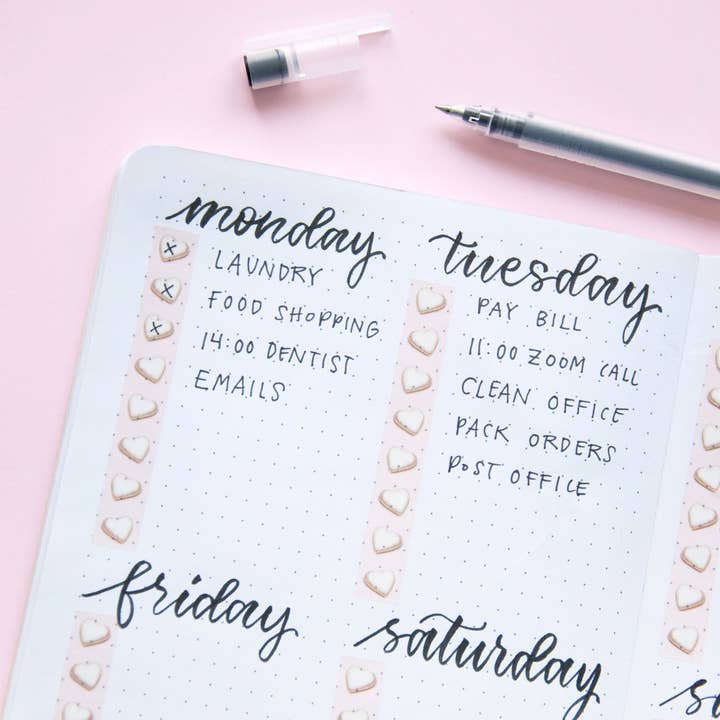 monday
x LAUNDRY
x FOOD SHOPPING
x 14:00 DENTIST
EMAILS
tuesday
PAY BILL
11:00 ZOOM CALL
CLEAN OFFICE
PACK ORDERS
POST OFFICE
friday
saturday